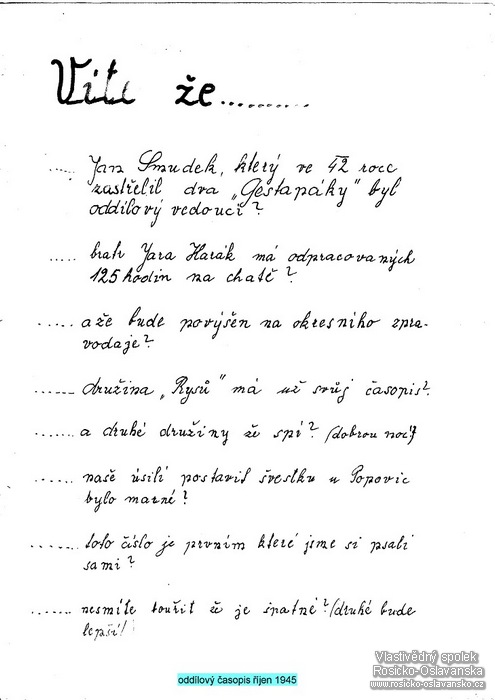 Víte že..........
..... Jan Smudek, který ve 42 roce
zastřelil dva „Gestapáky" byl
oddílový vedoucí?
..... bratr Jara Harák má odpracovaných
125 hodin na chatě?
..... a že bude povýšen na okresního zpra-
vodaje?
...... družina „Rysů" má už svůj časopis?
...... a druhé družiny že spí? /dobrou noc!/
...... naše úsilí postavit švestku u Popovic
bylo marné?
....... toto číslo je prvním které jsme si psali
sami?
....... nesmíte toužit že je špatné? /druhé bude
lepší!
oddílový časopis říjen 1945
Vlastivědný spolek
Rosicko-Oslavanska
www.rosicko-oslavansko.cz